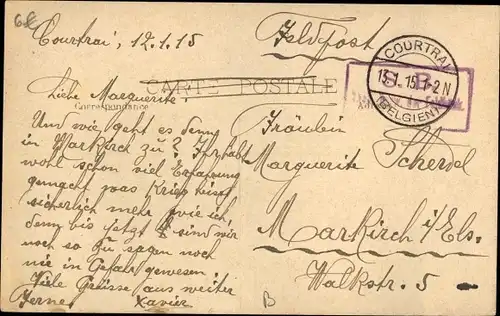 Courtrai, 12.1.15
Feldpost
COURTRAI
13.1.15.1-2N
(BELGIEN)
S. B.
CARTE POSTALE
Correspondance
Liebe Marguerite!
Und wie geht es denn
in Markirch zu? Ihr habt
wohl schon viel Erfahrung
gemacht was Krieg heisst
sicherlich mehr wie ich,
denn bis jetzt sind wir
noch so zu sagen noch
nie in Gefahr gewesen.
Viele Grüsse aus weiter
Ferne Xavier
Fräulein
Marguerite Scherdel
Markirch i/Els.
Walkstr. 5
B